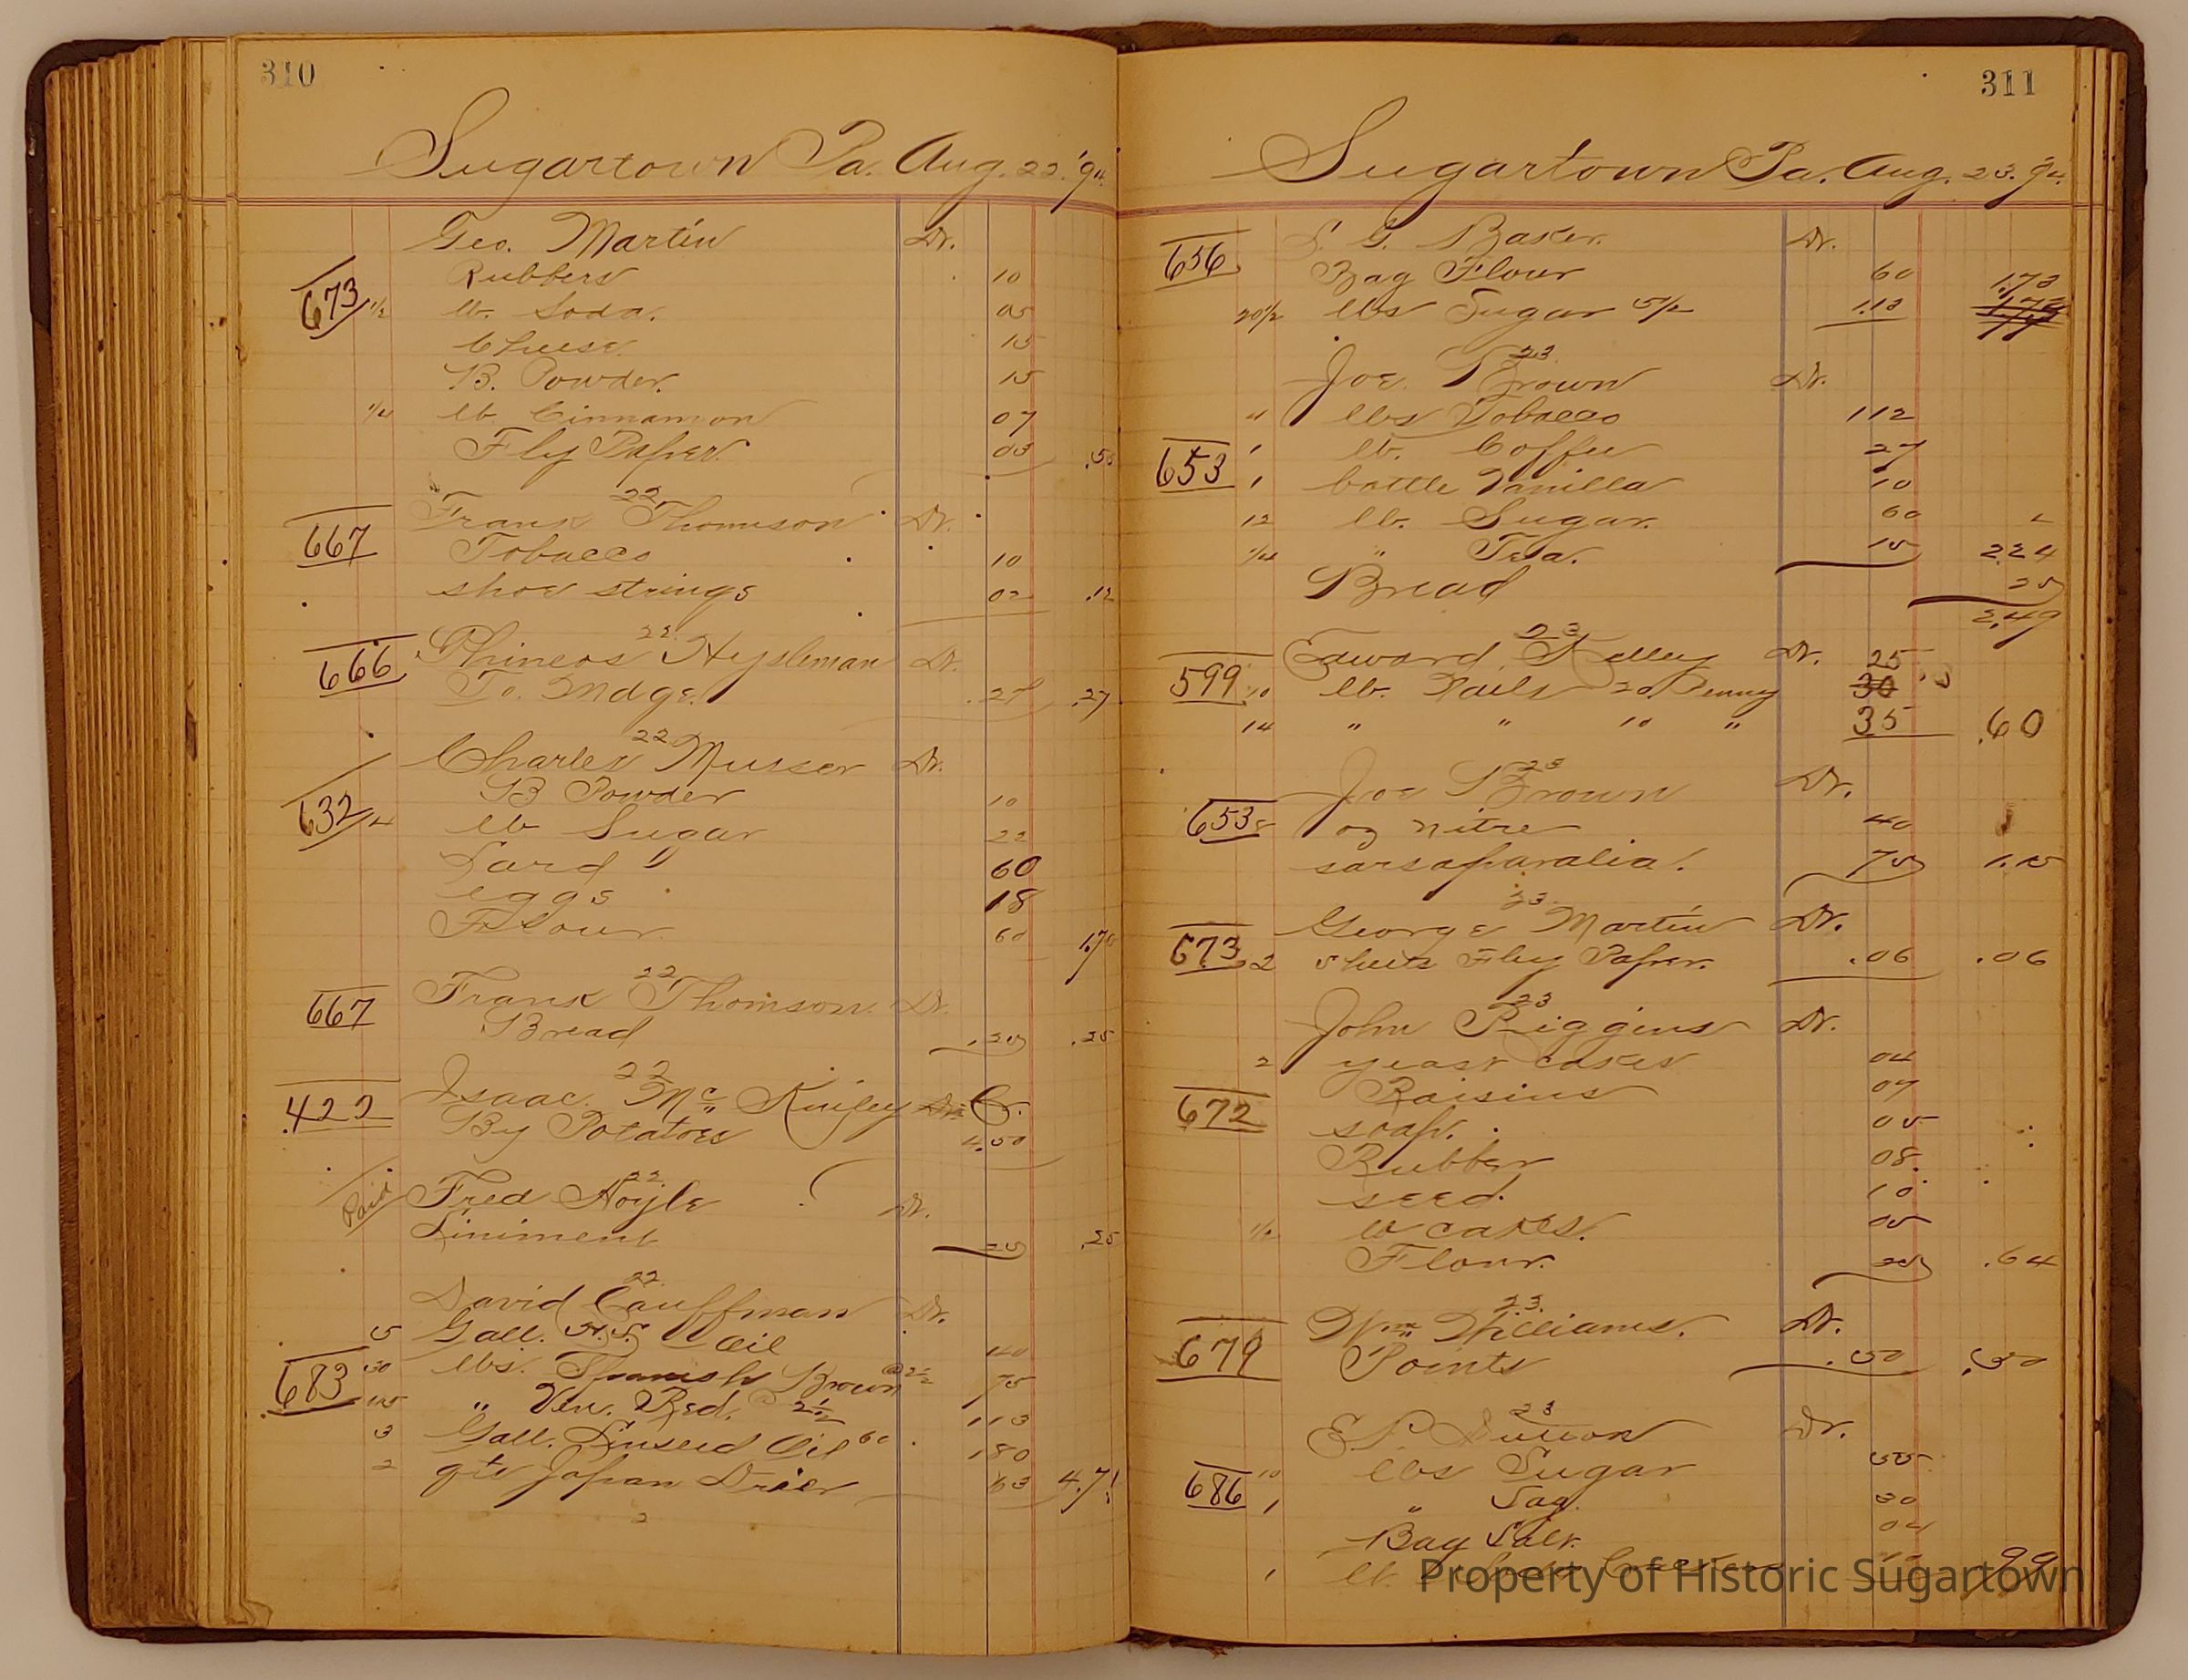 310
Sugartown Pa. Aug. 22. '94.
Geo. Martin Dr.
Rubbers 10
673 1/2 lb. Soda. 05
Cheese 15
B. Powder. 15
1/4 lb Cinnamon 07
Fly Paper. 03 .55
22
667 Frank Thomson Dr.
Tobacco 10
shoe strings 02 .12
22
666 Phineas Dr.
To. Mdge. .27 .27
22
Charles Musser Dr.
B Powder 10
632 4 lb Sugar 22
Lard 60
eggs 18
Flour 60 1.70
22
667 Frank Thomson. Dr.
Bread .25 .25
22
422 Isaac. Mc Kinley Dr. Cr.
By Potatoes 4.50
22
Paid Fred Hoyle Dr.
Liniment 25 .25
22
David Cauffman Dr.
5 Gall. H.L. Oil 40
683 30 lbs. Spanish Brown @ 2 1/2 75
45 " Ven. Red. 2 1/2 113
3 Gall. Linseed Oil 60 180
2 qts Japan Drier 63 4.71
311
Sugartown Pa. Aug. 23. 94.
656 S. G. Baker. Dr.
Bag Flour 60 1.73
20 1/2 lbs Sugar 5 1/2 1.13
23
Joe. Brown Dr.
4 lbs Tobacco 112
653 1 lb. Coffee 27
1 bottle Vanilla 10
12 lb. Sugar. 60
1/4 " Tea. 15 2.24
Bread 25
2.49
23
Edward. Kelley Dr. 25
599 10 lb. Nails 20 Penny 30
14 " " 10 " 35 .60
23
Joe Brown Dr.
653 8 oz nitre 40
sarsaparalia. 75 1.15
23
George Martin Dr.
673 2 sheets Fly Paper. .06 .06
23
John Riggins Dr.
2 yeast cakes 04
Raisins 07
672 soap. 05
Rubber 08.
seed. 10
1/2 lb cakes. 05
Flour. 25 .64
23.
679 Wm Williams. Dr.
Points .50 .50
23
E P. Dr.
686 10 lbs Sugar 55
1 " 30
Bag Salt. 04
1 lb. 99
Property of Historic Sugartown